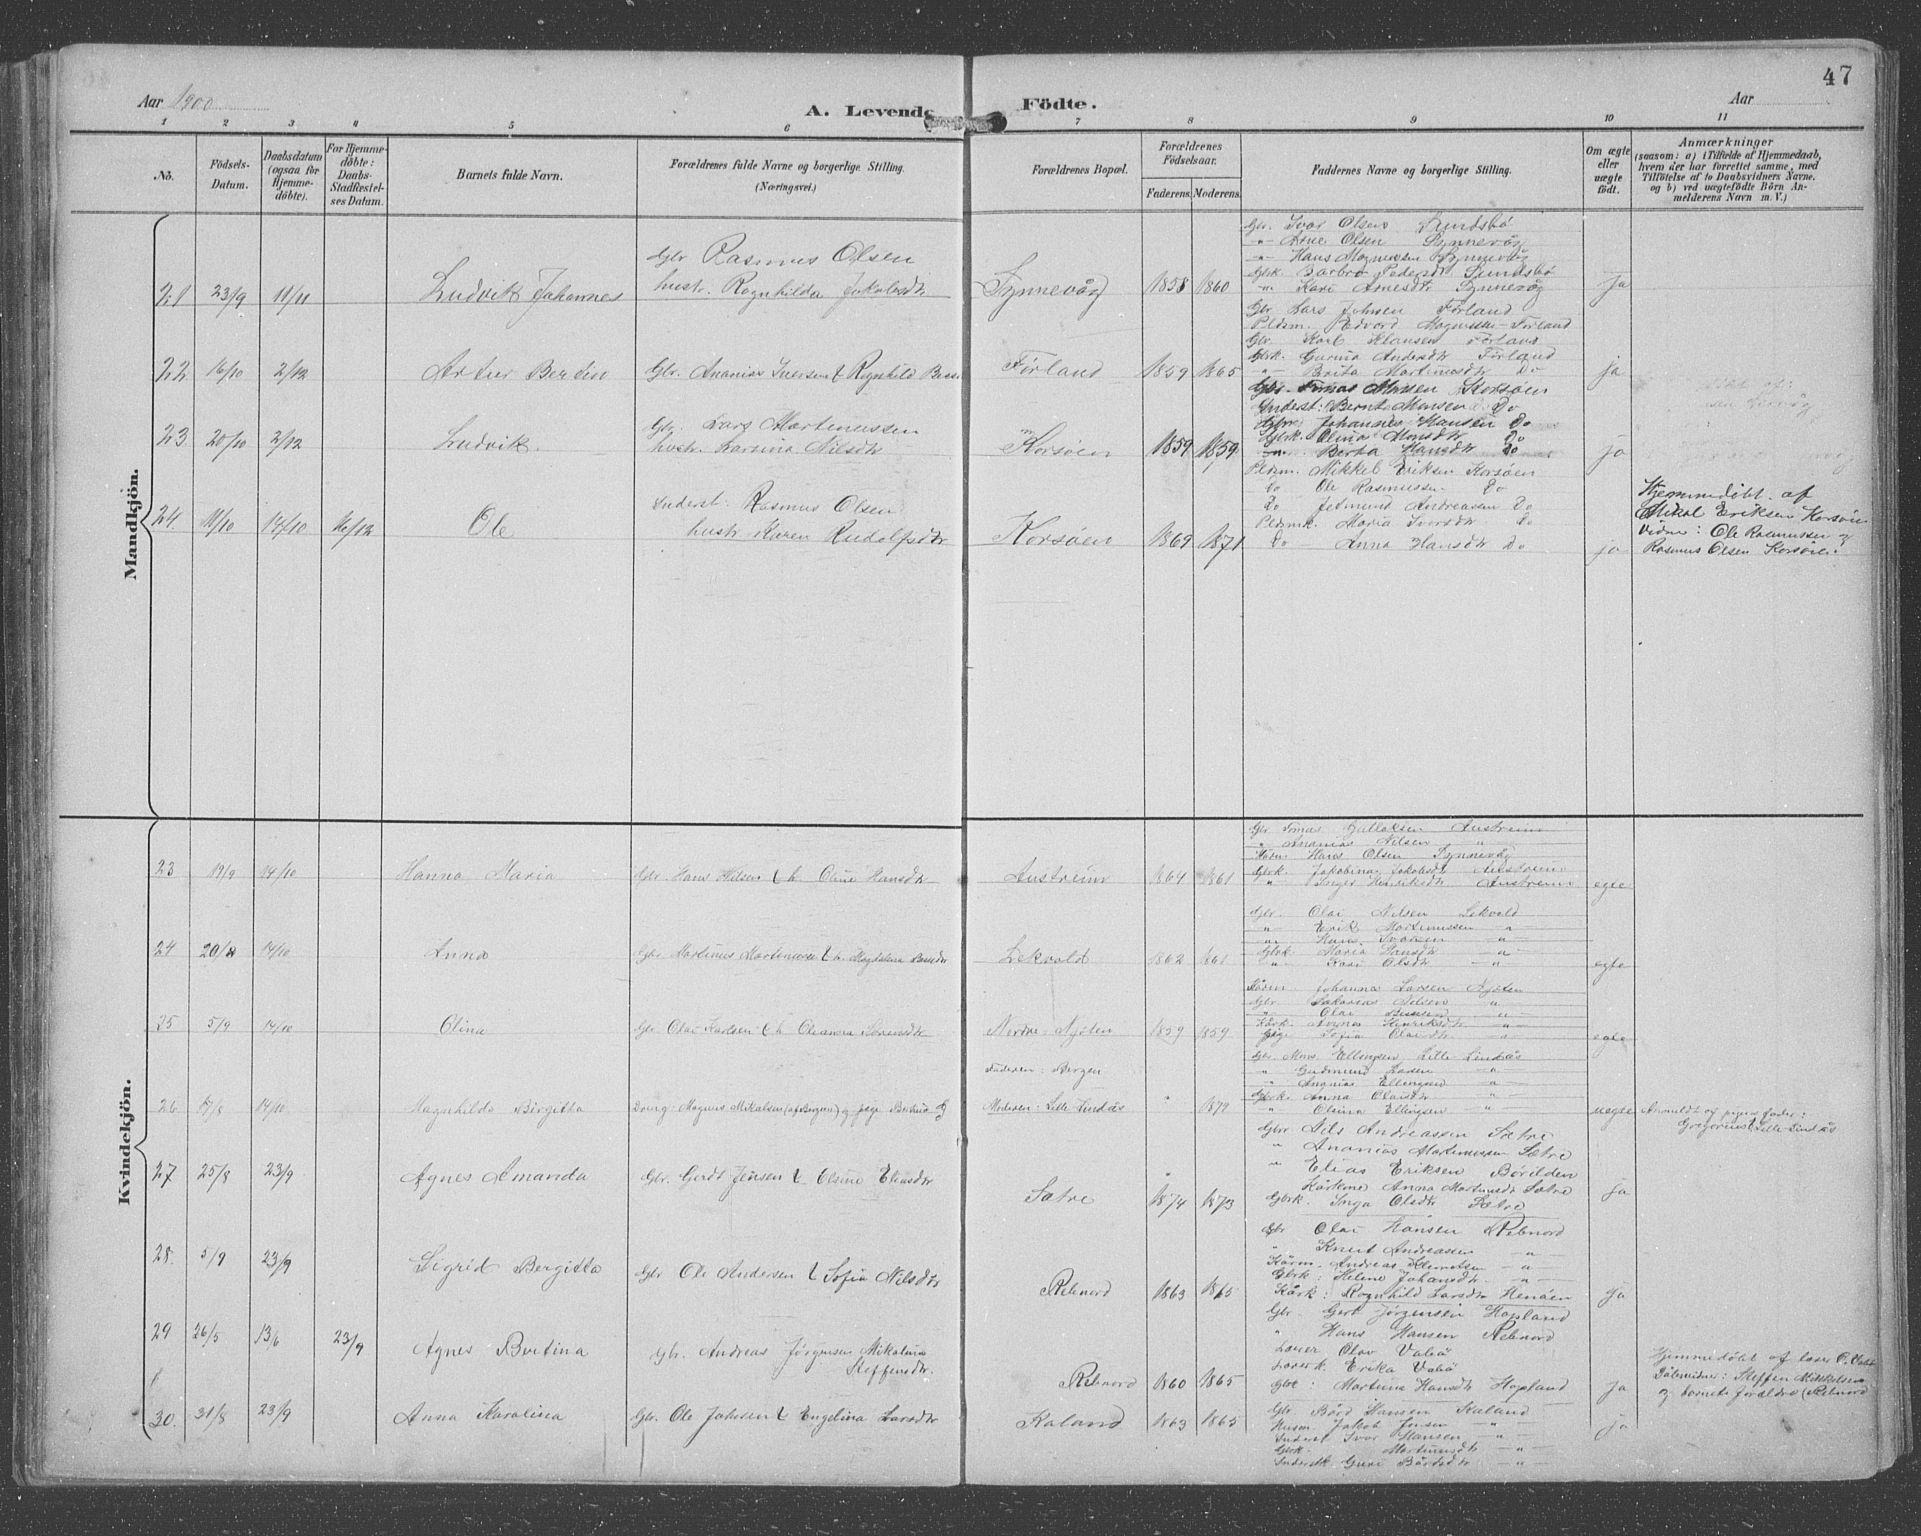 47
Aar 1900
A. Levende Födte.
Aar
1 2 3 4 5 6 7 8 9 10 11
No.
Födsels-Datum.
Daabsdatum (ogsaa for Hjemme-döbte).
For Hjemme-döbte: Daabs-Stadfæstel-ses Datum.
Barnets fulde Navn.
Forældrenes fulde Navne og borgerlige Stilling.
(Næringsvei.)
Forældrenes Bopæl.
Forældrenes Födselsaar.
Faderens. Moderens.
Faddernes Navne og borgerlige Stilling.
Om ægte eller uægte födt.
Anmærkninger
(saasom: a) i Tilfælde af Hjemmedaab,
hvem der har forrettet samme, med
Tilföielse af to Daabsvidners Navne.
og b) ved uægtefödte Börn An-
melderens Navn m. V.)
Mandkjön.
21 23/9 11/11 Ludvik Johannes
Gbr Rasmus Olsen
hustr. Ragnhilda Jakobsdtr
Synnevåg 1858 1860
Gbr. Ivar Olsen Sundsbö
-"- Arne Olsen Synnevåg
-"- Hans Magnessen Synnevåg
Gbrk. Barbro Pedersdt Sundsbö
" Kari Arnesdtr Synnevåg
ja
22 16/10 2/12 Artur Bertin
Gbr. Ananias Iversen & Ragnhild
Förland 1859 1865
Gbr. Lars Johnsen Förland
Pldsm. Edvard Förland
Gbr. Karl Klausen Förland
Gbrk. Andersdtr Förland
-"- Brita Martinusdtr Do
ja
23 20/10 2/12 Ludvik.
Gbr. Lars Martinussen
hustr. Larsina Nilsdtr
Korsöen 1859 1859
Gbr. Tomas Monsen Korsöen
Inderst: Bernt Monsen Do
Johannes Hansen Do
Gbrk. Olina Monsdtr Do
-"- Berta Hansdtr Do
ja
24 11/10 14/10 16/12 Ole
Inderst. Rasmus Olsen
hustr Karen Rudolfsdtr
Korsöen 1869 1871
Pldsm. Mikkel Eriksen Korsöen
Do Ole Rasmussen Do
Do Jetmund Andreasen Do
Pldsmk. Maria Iversdtr Do
Do Anna Hansdtr Do
ja
Hjemmedöbt. af
Mikal Eriksen Korsöen
Vidne: Ole Rasmussen og
Rasmus Olsen Korsöen.
Kvindekjön.
23 19/9 14/10 Hanna Maria
Gbr. Hans Nilsen & h. Oline Hansdtr
Austreim 1864 1861
Gbr Tomas Austreim
" Ananias Nilsen "
Hans Olsen Synnevåg
Gbrk. Jakobina Jakobsdtr Austreim
" Inger Henriksdtr Austreim
egte
24 20/8 14/10 Anna
Gbr. Martinus Martinusen & h. Magdalena
Lekvold 1862 1861
Gbr. Olai Nilsen Lekvold
-"- Erik Martinussen -"-
-"- Hans Ivarsen -"-
Gbrk. Maria Hansdtr -"-
-"- Kari Olsdtr -"-
egte
25 5/9 14/10 Olina
Gbr Olai Karlsen & h Oleanna Sörensdtr
Nordre Njöten 1859 1859
Johannes Larsen Njöten
Gbr. Sakarias Nilsen "
" Olai "
Kårk. Agnes Henriksdtr "
Pige Sofia Olaisdtr "
egte
Faderen: Bergen
26 17/8 14/10 Magnhilda Birgitta
Magnus Mikalsen (af Bergen) og pige
Moderen: Lille Lindås " 1879
Gbr. Mons Ellingsen Lille Lindås
" Gudmund Larsen "
" Ananias Ellingsen "
Gbrk. Anna Olaisdtr "
" Olina Ellingsen "
uegte
Anmeldt af pigens fader:
Gregorius Lille Lindås
27 25/8 23/9 Agnes Amanda
Gbr. Gerdt Jensen & Olsine Eliasdtr
Sætre 1874 1873
Gbr Nils Andreassen Sætre
" Ananias Martinussen Sætre
" Elias Eriksen Börilden
Kårkone Anna Martinusdt Sætre
Gbrk. Inga Olsdtr Sætre
ja
28. 5/9 23/9 Sigrid Bergitta
Gbr Ole Andersen & Sofia Nilsdtr
Rebnord 1863 1865
Gbr Olai Hansen Rebnord
" Knut Andreassen -"-
Kårm. Andreas -"-
Gbrk: Helene Johansdtr. -"-
Kårk: Ragnhild Larsdtr Henöen
ja
29 26/5 13/6 23/9 Agnes Bertina
Gbr. Andreas Jörgensen Mikalina
Steffensdtr.
Rebnord 1860 1865
Gbr. Gert Jörgensen Hopland
" Hans Hansen Rebnord
Loser Olav Valö
Loserk. Erika Valö
Gbrk: Martina Hansdtr Hopland
ja
Hjemmedöbt af loser O. Valö
Dåbsvidner: Steffen Mikkelsen
og barnets forældre (Rebnord
30. 31/8 23/9 Anna Karolina
Gbr. Ole Johnsen & Engelina Larsdtr
Kaland 1863 1865
Gbr Bård Hansen Kaland
Husm Jakob Jonsen "
Inderst Ivar Hansen -"-
Gbrk. Martinusdtr -"-
Inderstk Guri Bårdsdtr -"-
ja